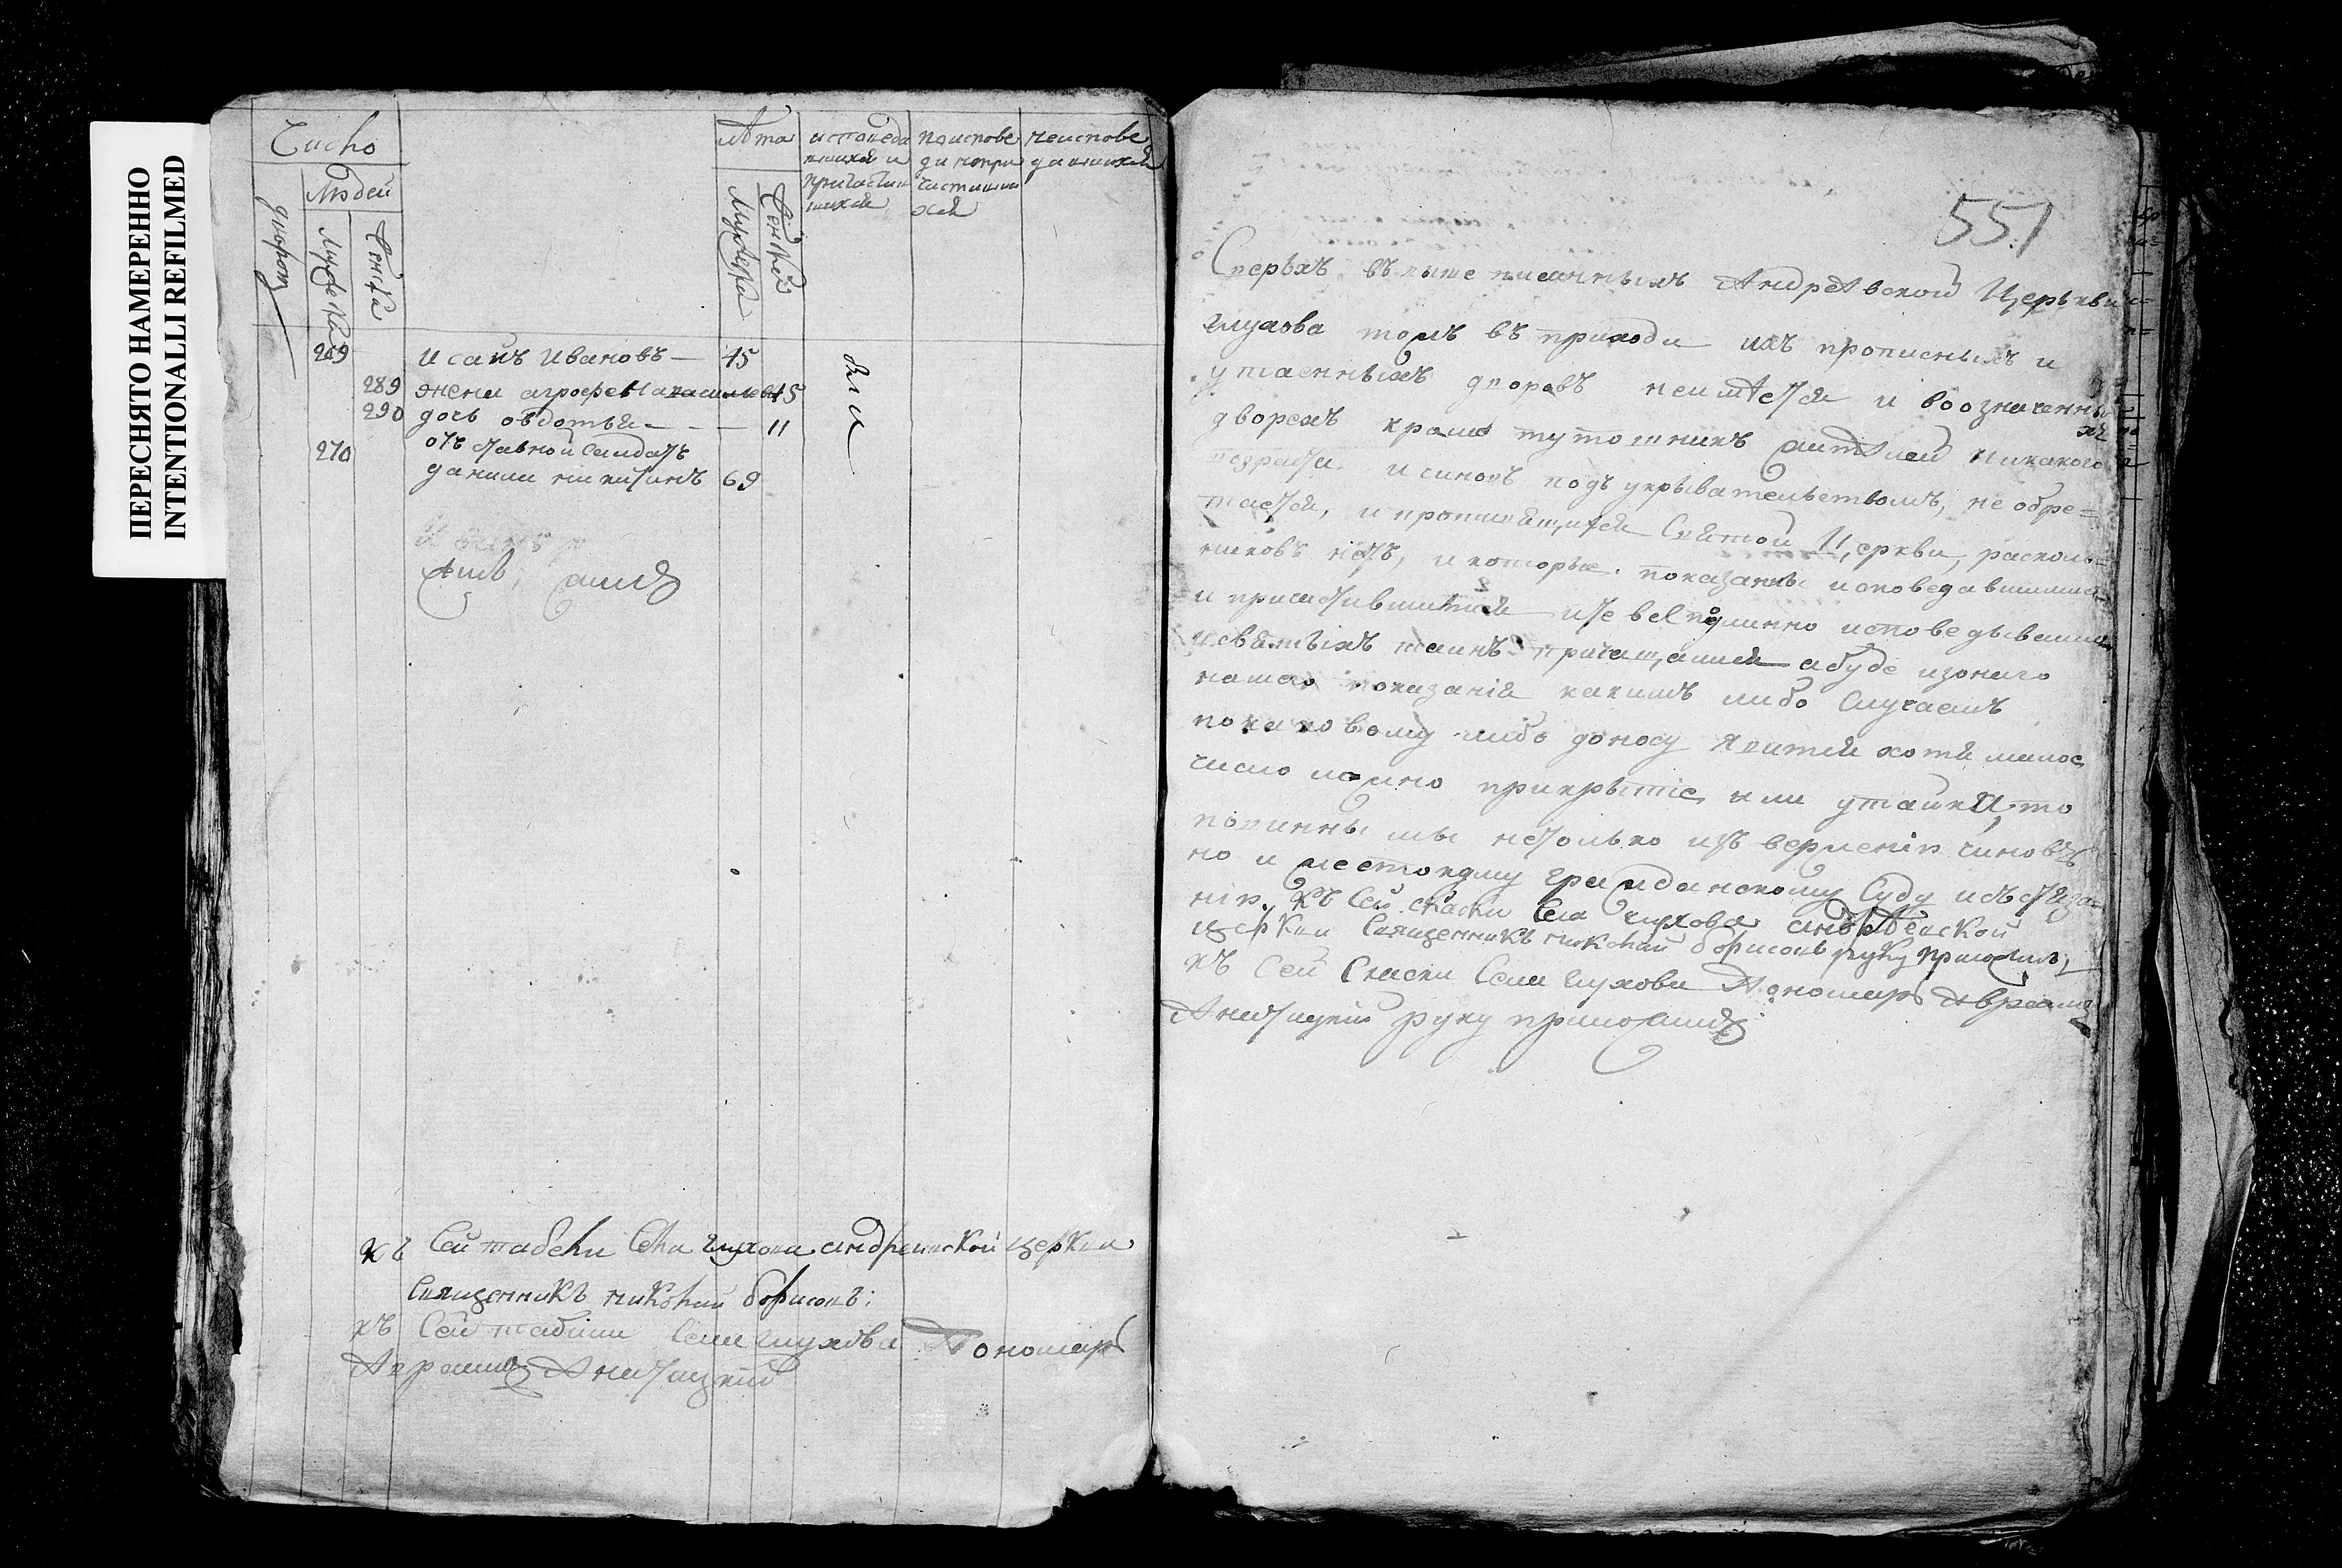 ПЕРЕСНЯТО НАМЕРЕННО
INTENTIONALLI REFILMED
Число
Людей
дворов
мужеска
женска
лѣта
мужеска
женска
исповеда
вшихся и
причасти
вшихся
поиспове
ди непри
частивши
хся
неиспове
давшихся
269 исаиъ ивановъ — 45
289 жена агрофена васильева 45
290 дочь овдотья — — 11
были
отъставной салдатъ
270 данила никитинъ 69
къ сей табели села глухова андреевской церкви
священникъ николай борисовъ:
къ сей табили села глухова Пономарь
Авраамъ
551
Сверьхъ въ выше писанныхъ Андрѣевской Церькви
глухова томъ въ приходи ихъ прописныхъ и
утаенныхъ дворовъ неимѣется и воозначенны
хъ
дворехъ кроме тутошнихъ жителей никакого
возраста и чиновъ подъ укрывательствомъ, не обре=
тается, и противящихся Святой Церкви, расколь=
никовъ нетъ, и которые показаны исповедавшимися
и причастившимися и те все подлинно исповедывались
и святыхъ таинъ причащались а буде изоного
нашего показанія какимъ либо случаемъ
покаковому либо доносу явится хотя малое
число прикрытіе или утайка, то
повинны мы нетолько изъвержению чиновъ
но и жестокому гражданскому суду истяза=
нію. къ сей скаски села глухова андрѣевской
церкви священникъ николай борисовъ руку приложилъ,
къ сей скаски села глухова Пономарь Авраамъ
руку приложилъ